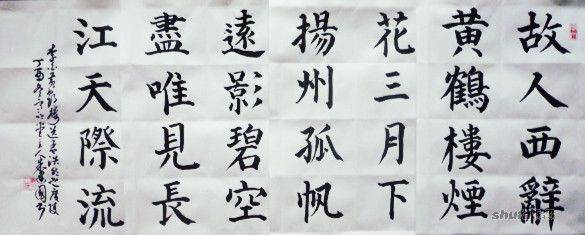 故人西辭
黄鶴樓煙
花三月下
揚州孤帆
遠影碧空
盡唯見長
江天際流
李白黄鶴樓送孟浩然之廣陵
丁酉冬